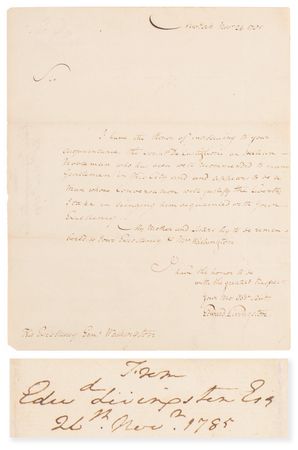 New York Novr. 24. 1785
Sir
I have the Honor of introducing to your
acquaintance, the Count De Castiglioni an Italian
Nobleman who has been well recommended to many
Gentlemen in this City and and appears to be a
Man whose Conversation will justify the Liberty
I take in bringing him acquainted with your
Excellency
My Mother and Sisters beg to be remem-
bered to your Excellency & Mrs Washington
I have the honor to be
with the greatest Respect
Your Mo. Obt. Servt
Edward Livingston
His Excellency Genl. Washington
From
Edwd. Livingston Esq
24th. Novr. 1785